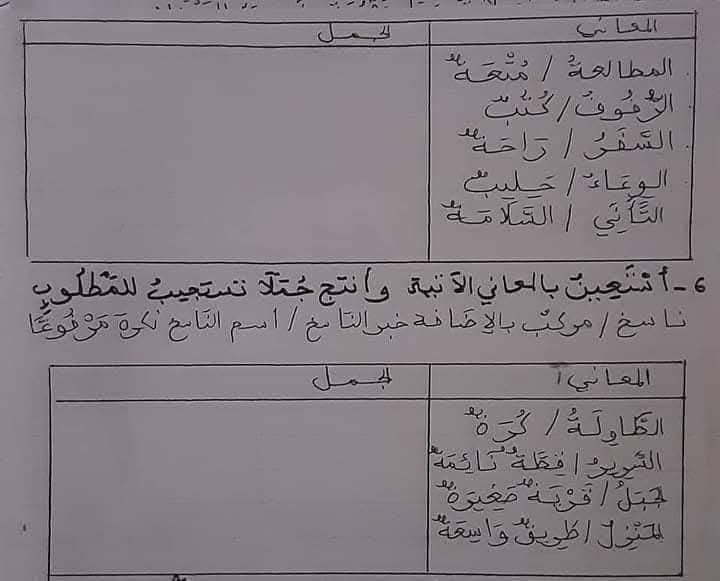 المعاني الجمل
المطالعةُ / مُتْعَةٌ
الرُّفُوفُ / كُتُبٌ
السَّفَرُ / رَاحَةٌ
الوِعَاءُ / حَلِيبٌ
التَّأَنِّي / السَّلَامَةُ
6 - أسْتَعِينُ بالمعاني الآتية وأنتج جُمَلًا تستجيبُ للمَطْلُوبِ
ناسخ / مركبٌ بالإضافة خبر الناسخ / اسم الناسخ نكرة مَرْفُوعًا
المعاني الجمل
الطَّاوِلَةُ / كُرَةٌ
السّريرُ / قِطَّةٌ نَائِمَةٌ
الجَبَلُ / قَرْيَةٌ صَغِيرَةٌ
المَنْزِلُ / طَرِيقٌ وَاسِعَةٌ